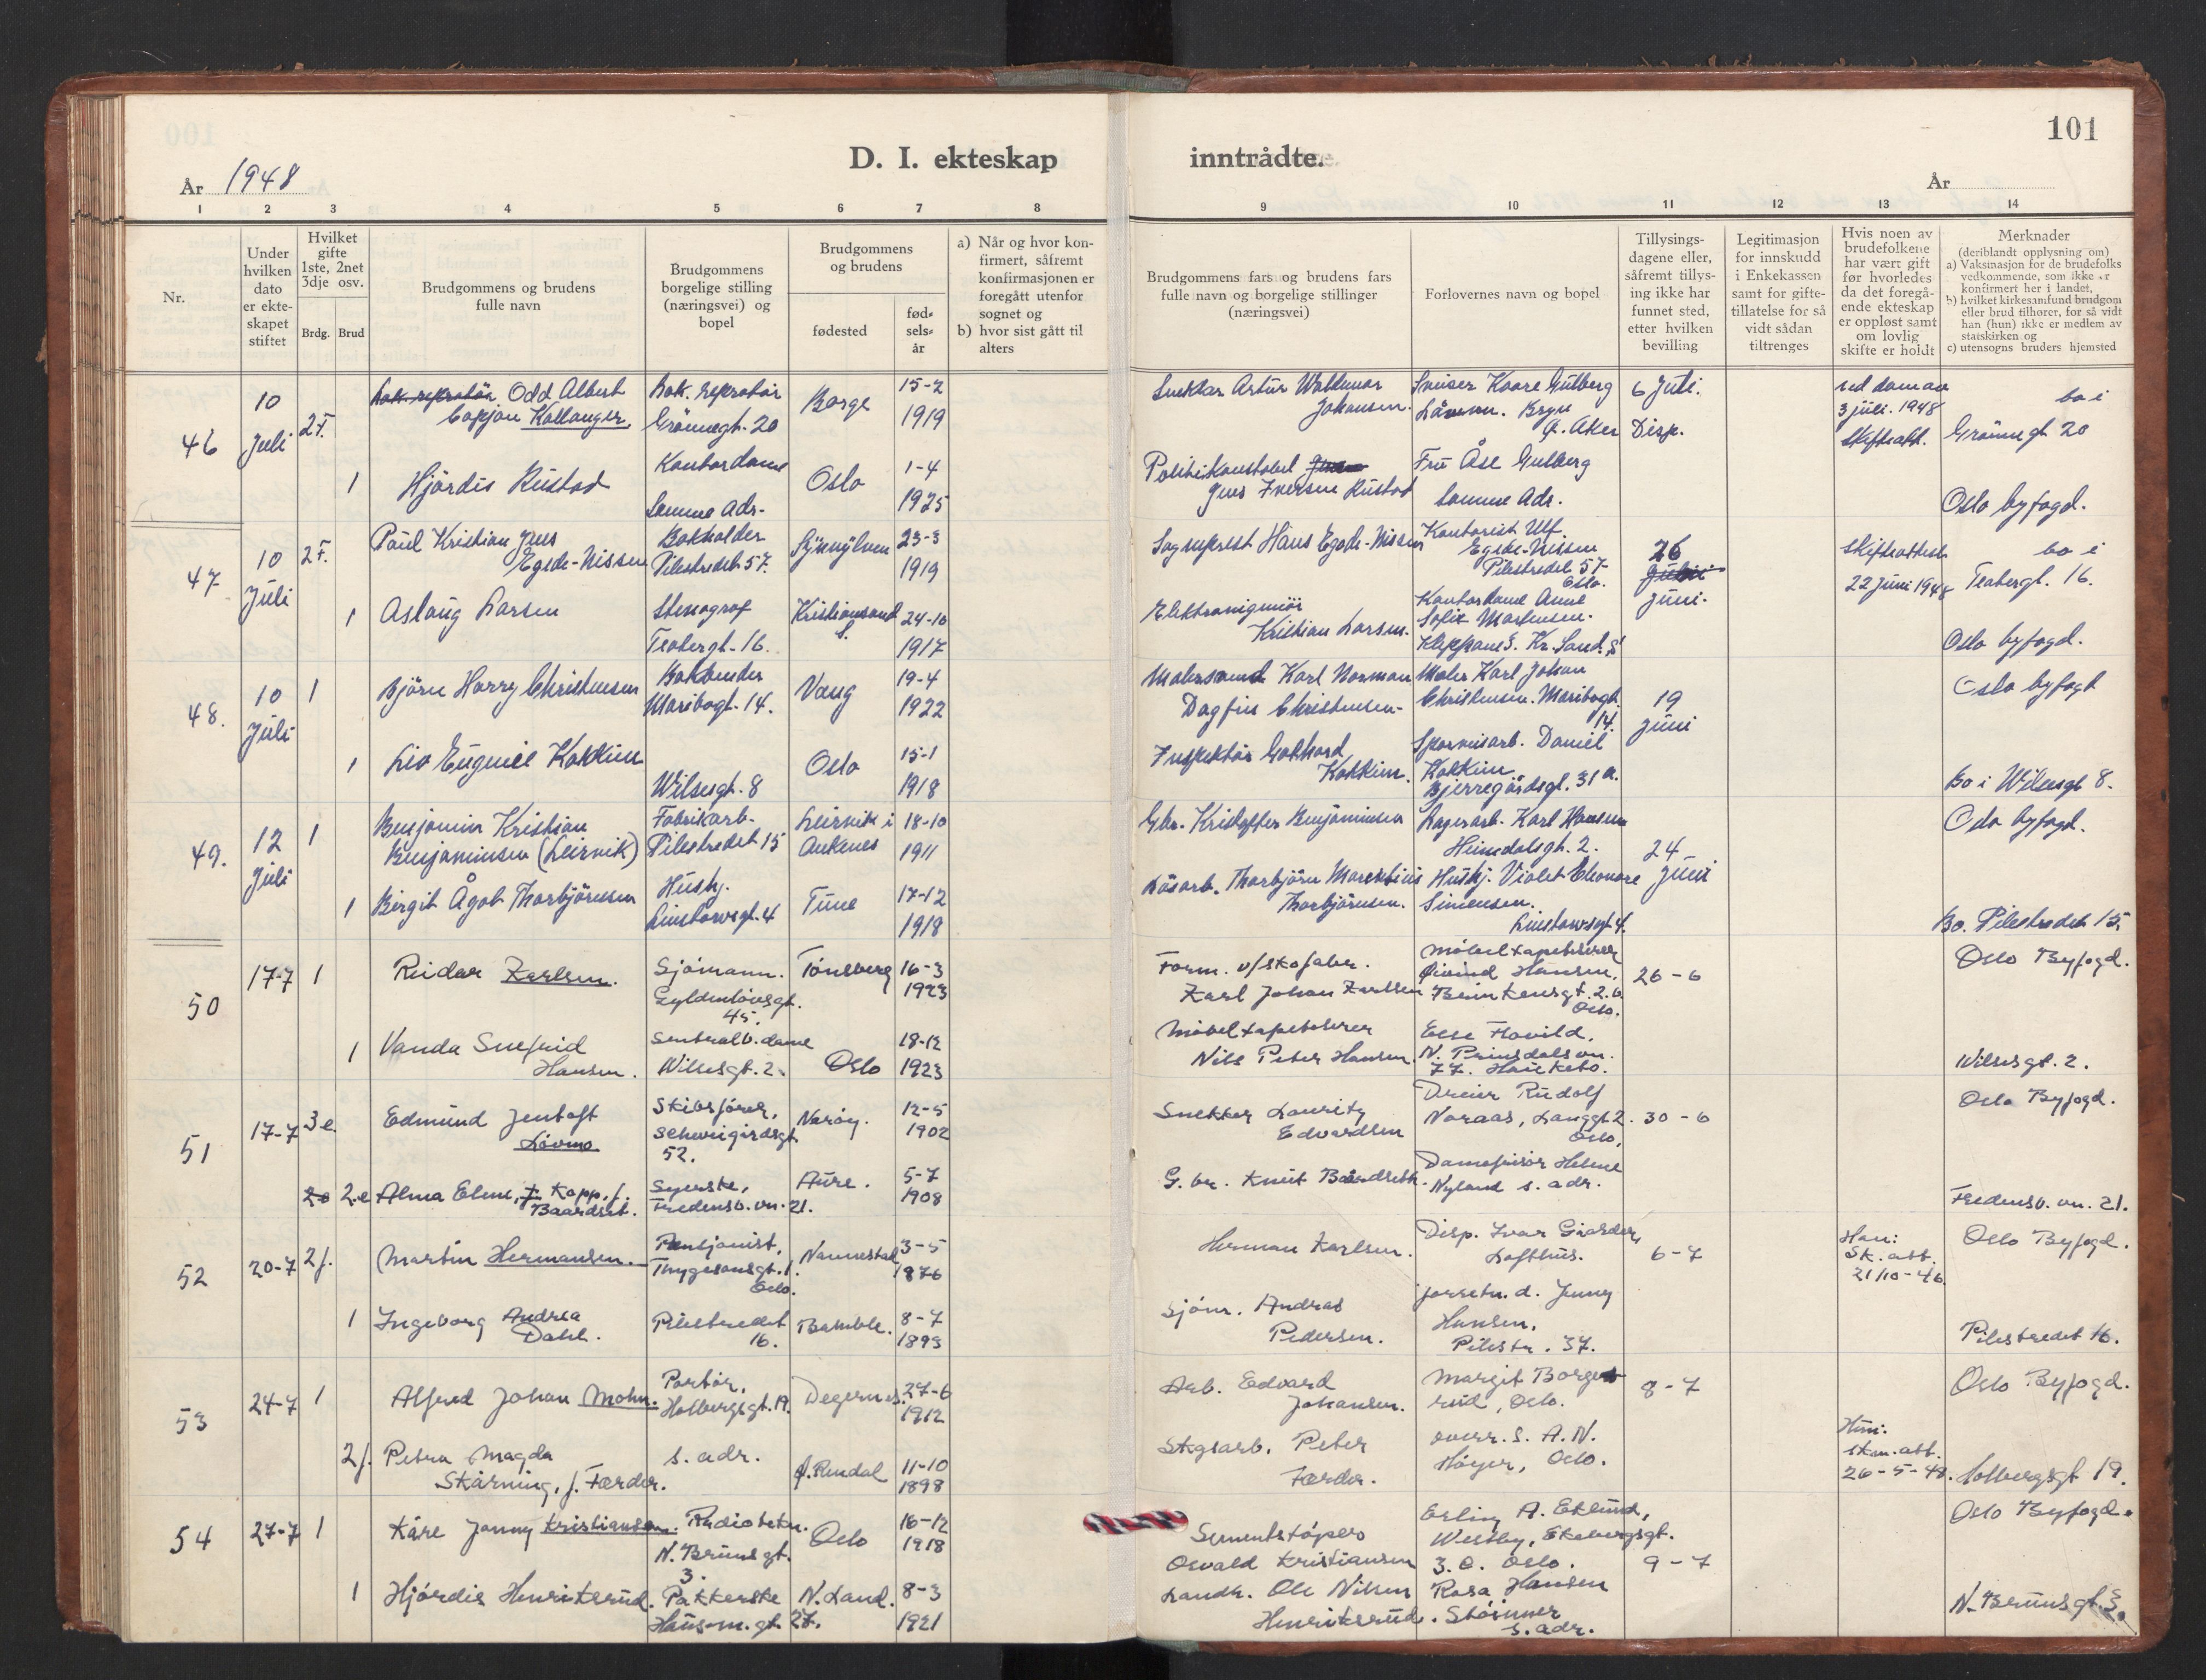 101
D. I. ekteskap inntrådte.
År 1948
År
1 2 3 4 5 6 7 8 9 10 11 12 13 14
Nr.
Under hvilken dato er ekteskapet stiftet
Hvilket gifte 1ste, 2net 3dje osv.
Brdg. Brud
Brudgommens og brudens fulle navn
Brudgommens borgelige stilling (næringsvei) og bopel
Brudgommens og brudens
fødested
fødselsår
a) Når og hvor konfirmert, såfremt konfirmasjonen er foregått utenfor sognet og
b) hvor sist gått til alters
Brudgommens fars og brudens fars fulle navn og borgelige stillinger (næringsvei)
Forlovernes navn og bopel
Tillysingsdagene eller, såfremt tillysing ikke har funnet sted, etter hvilken bevilling
Legitimasjon for innskudd i Enkekassen samt for giftetillatelse for så vidt sådan tiltrenges
Hvis noen av brudefolkene har vært gift før hvorledes da det foregående ekteskap er oppløst samt om lovlig skifte er holdt
Merknader
(deriblandt opplysning om)
a) Vaksinasjon for de brudefolks vedkommende, som ikke er konfirmert her i landet,
b) hvilket kirkesamfund brudgom eller brud tilhører, for så vidt han (hun) ikke er medlem av statskirken og
c) utensogns bruders hjemsted
46 10 Juli 2 F. Odd Albert Kollanger
Grönnegt. 20
Borge 15-2 1919
Artur Waldemar Johansen.
Kaare Gulberg
Bryn Ø. Aker
6 Juli. Disp.
3 juli. 1948
Skifteatt.
bo i Grönnegt 20
1 Hjördis Rustad
Kontordame
Samme Adr.
Oslo 1-4 1925
Politikonstabel Jens Iversen Rustad
Fru Åse Gulberg
Samme Adr.
Oslo byfogd.
47 10 Juli 2 F. Paul Kristian Jens Egede-Nissen
Bokholder
Pilestredet 57.
Sykkylven 23-3 1919
Sogneprest Hans Egede-Nissen
Kontorist Ulf Egede-Nissen
Pilestredet 57
Oslo.
26 Juni.
Skifteattest
22 Juni 1948
bo i Teatergt. 16.
1 Aslaug Larsen
Stenograf
Teatergt. 16.
Kristiansand S. 24-10 1917
Kristian Larsen.
Kontordame Anne Sofie Mortensen.
Kr. Sand. S
Oslo byfogd.
48. 10 Juli 1 Björn Harry Christensen
Bokbinder
Maribogt. 14.
Vang 19-4 1922
Karl Norman Dagfin Christensen
Maler Karl Johan Christensen. Maribogt. 14.
19 Juni
Oslo byfogd
1 Liv Eugenie Kokkim
Wilsesgt. 8
Oslo 15-1 1918
Inspektör Gothard Kokkim.
Sporveisarb. Daniel Kokkim
Bjerregårdsgt. 31 a.
Bo i Wilsesgt 8.
49. 12 Juli 1 Benjamin Kristian Benjaminsen (Leirvik)
Fabrikarb.
Pilestredet 15
Leirvik i Ankenes 18-10 1911
Gbr. Kristoffer Benjaminsen
Lagerarb. Karl Hansen
Heimdalsgt. 2.
24 Juni
Oslo byfogd.
1 Birgit Ågot Thorbjörnsen
Hushj.
Linstowsgt. 4
Tune 17-12 1918
Lösarb. Thorbjörn Marentius Thorbjörnsen.
Hushj. Violet Eleonore Simensen.
Linstowsgt 4.
Bo. Pilestredet 15.
50 17-7 1 Reidar Karlsen.
Sjömann.
Gyldenlövsgt. 45.
Tönsberg 16-3 1923
Form. v/skofabr.
Karl Johan Karlsen
Möbeltapetserer Øivind Hansen,
Oslo.
26-6
Oslo Byfogd.
1 Vanda Snefrid Hansen.
Sentralb.dame
Wilsesgt. 2.
Oslo 18-12 1923
Möbeltapetserer
Nils Peter Hansen.
Else Flovild,
N. Prinsdals vn. 77. Hauketo.
Wilsesgt. 2.
51 17-7 3 e. Edmund Jentoft Lövmo
Skibsförer,
Schweigårdsgt. 52.
Naröy. 12-5 1902
Snekker Lauritz Edvardsen
Dreier Rudolf Noraas, Langgt 2.
Oslo.
30-6
Oslo Byfogd.
2.e Alma Eline, Kopp, f. Baardset.
Syerske,
Fredensb. vn. 21.
Aure. 5-7 1908
G. br. Knut Baardseth.
Damefrisör Helene Nyland s. adr.
Fredensb. vn. 21.
52 20-7 2 f. Martin Hermansen.
Pensjonist,
Thygesonsgt. 1.
Oslo.
Nannestad 3-5 1876
Herman Karlsen.
Disp. Ivar Gjarder, Lofthus.
6-7
Han:
Sk. att.
21/10-46
Oslo Byfogd.
1 Ingeborg Andrea Dahl.
Pilestredet 16.
Bamble. 8-7 1893
Sjöm. Andreas Pedersen.
forretn. d. Jenny Hansen,
Pilestr. 37.
Pilestredet 16.
53 24-7 1 Alfred Johan Mohn.
Portör,
Holbergsgt. 19.
Degernes. 27-6 1912
Arb. Edvard Johansen.
Margit Borgerud, Oslo.
8-7
Oslo Byfogd.
2 f. Petra Magda Skårning, f. Færder.
s. adr.
Ø. Rendal 11-10 1898
Skgsarb. Peter Færder.
overr. S. A. N. Höyer, Oslo.
Hun:
26-5-48.
Holbergsgt 19.
54 27-7 1 Kåre Jonny Kristiansen.
Radiotekn.
N. Bruns gt. 3.
Oslo 16-12 1918
Sementstöper
Osvald Kristiansen
Erling A. Eklund,
Westby, Ekebergsgt.
Oslo.
9-7
Oslo Byfogd.
1 Hjördis Henriksrud.
Pakkerske
Hausm. gt. 27.
N. Land. 8-3 1921
Landh. Ole Nilsen Henriksrud.
Rosa Hansen
s. adr.
N. Bruns gt. 3.